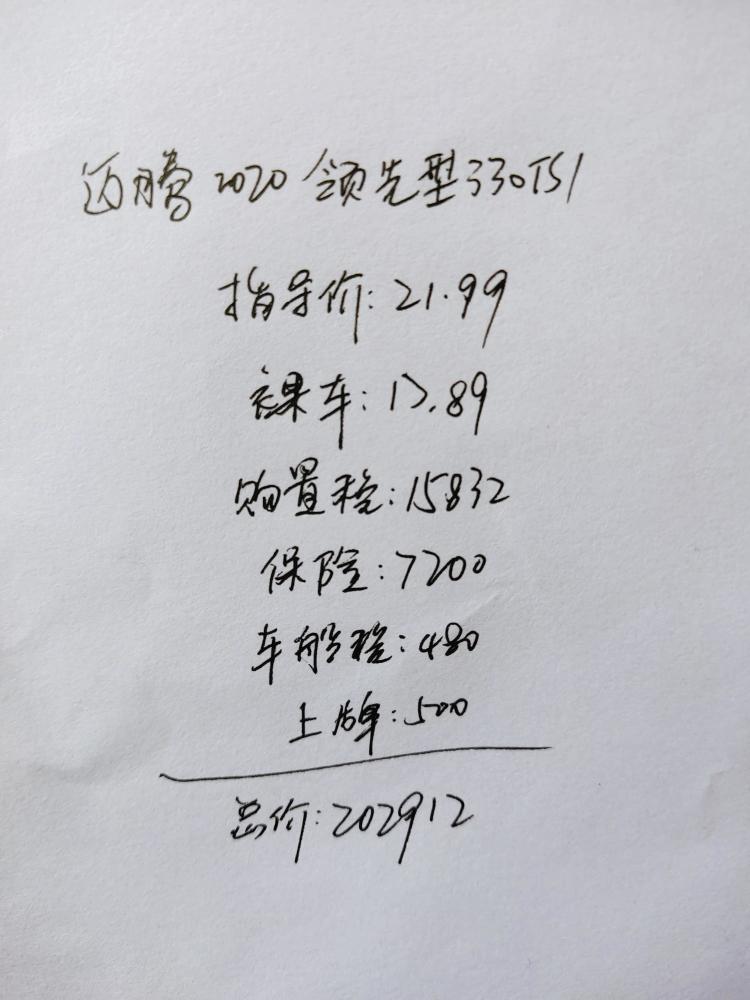 迈腾2020领先型330TSI
指导价:21.99
裸车:17.89
购置税:15832
保险:7200
车船税:480
上牌:500
总价:202912